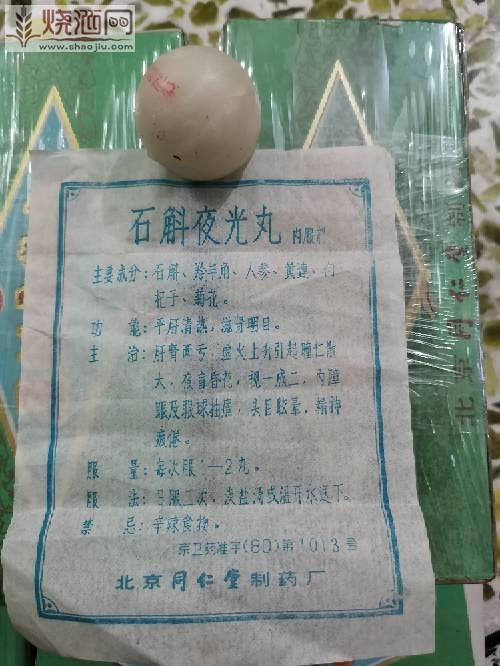 烧酒网
www.shaojiu.com
石斛夜光丸 内服
主要成分：石斛、羚羊角、人参、黄连、枸
杞子、菊花。
功 能：平肝清热，滋肾明目。
主 治：肝肾两亏，虚火上升引起瞳仁散
大，夜盲昏花，视一成二，内障
头目眩晕，精神
疲倦。
服 量：每次服1—2丸。
服 法：日服二次，淡盐汤或温开水送下。
禁 忌：辛辣食物。
京卫药准字(80)第1013号
北京同仁堂制药厂
北京同仁堂制